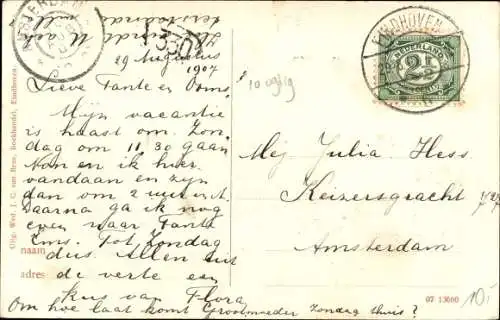 29 Augustus
1907
Lieve Tante en Oms.
Mijn vacantie
is haast om. Zon,
dag om 11,30 gaan
Non en ik hier
vandaan en zijn
dan om 2 uur in A.
Daarna ga ik nog
even naar Tante
Ems. Tot Zondag
dus. Allen uit
de verte een
kus van Flora
Om hoe laat komt Grootmoeder Zondag thuis?
naam
adres
Uitg. Wed. J. C. van Bree, Boekhandel, Eindhoven
10 og/19
EINDHOVEN
NEDERLAND
2½
CENT
Mej Julia Hess
Keizersgracht 727
Amsterdam
07 13600
10,-
AMSTERDAM